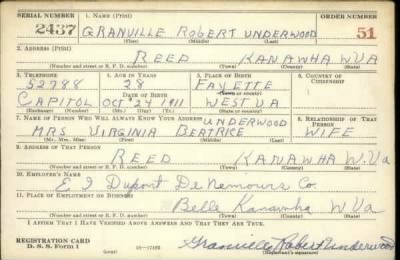 SERIAL NUMBER 1. NAME (Print) ORDER NUMBER
2437 GRANVILLE ROBERT UNDERWOOD 51
(First) (Middle) (Last)
2. ADDRESS (Print)
REED KANAWHA W.VA
(Number and street or R. F. D. number) (Town) (County) (State)
3. TELEPHONE 4. AGE IN YEARS 5. PLACE OF BIRTH 6. COUNTRY OF CITIZENSHIP
52788 28 FAYETTE
DATE OF BIRTH (Town or county)
CAPITOL OCT 24 1911 WEST VA
(Exchange) (Number) (Mo.) (Day) (Yr.) (State or country)
7. NAME OF PERSON WHO WILL ALWAYS KNOW YOUR ADDRESS 8. RELATIONSHIP OF THAT PERSON
UNDERWOOD
MRS. VIRGINIA BEATRICE WIFE
(Mr., Mrs., Miss) (First) (Middle) (Last)
9. ADDRESS OF THAT PERSON
REED KANAWHA W.Va
(Number and street or R. F. D. number) (Town) (County) (State)
10. EMPLOYER'S NAME
E I Dupont De Nemours Co.
11. PLACE OF EMPLOYMENT OR BUSINESS
Belle Kanawha W Va
(Number and street or R. F. D. number) (Town) (County) (State)
I AFFIRM THAT I HAVE VERIFIED ABOVE ANSWERS AND THAT THEY ARE TRUE.
REGISTRATION CARD
D. S. S. Form 1 Granville Robert Underwood
(Registrant's signature)